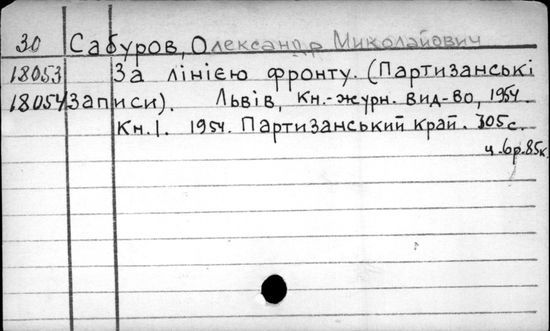 30 Сабуров, Олександр Миколайович
18053 За лінією фронту. (Партизанські
18054 записи). Львів, Кн.-журн. вид-во, 1954.
Кн. 1. 1954. Партизанський край. 305 с.
ц. 6р. 85к.